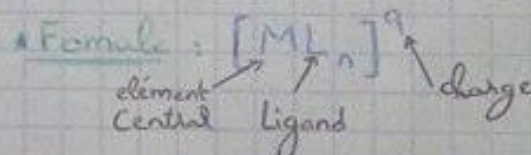 Formule : [MLn]q
élément
Central Ligand charge